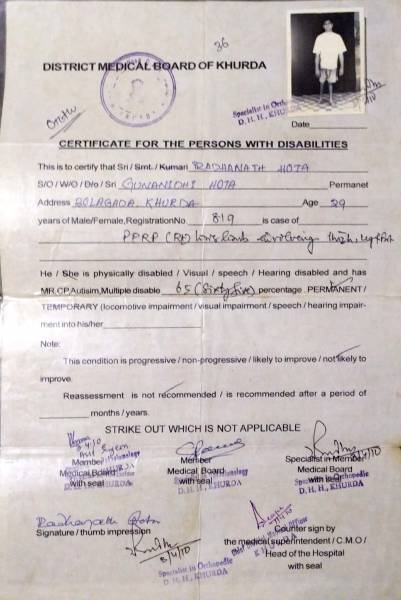 36
DISTRICT MEDICAL BOARD OF KHURDA
Ortho
Specialist in Orthop
D. H. H., KHURDA
Date
CERTIFICATE FOR THE PERSONS WITH DISABILITIES
This is to certify that Sri / Smt. / Kumari RADHANATH HOTA
S/O / W/O / D/o / Sri GUNANIDHI HOTA Permanet
Address BOLAGADA, KHURDA Age 29
years of Male/Female, Registration No 819 is case of
PPRP (Rt) Lower limb involving thigh, leg & foot
He / She is physically disabled / Visual / speech / Hearing disabled and has
MR.CP.Autisim,Multiple disable 65 (Sixty five) percentage. PERMANENT /
TEMPORARY (locomotive impairment / visual impairment / speech / hearing impair-
ment into his/her
Note:
This condition is progressive / non-progressive / likely to improve / not likely to
improve.
Reassessment is not recommended / is recommended after a period of
months / years.
STRIKE OUT WHICH IS NOT APPLICABLE
Member Member Specialist in Member
Medical Board Medical Board Medical Board
with seal with seal with seal
D. H. H., KHURDA D. H. H., KHURDA
Specialist in Orthopedic
Radhanath Hota
Signature / thumb impression
Counter sign by
the medical superintendent / C.M.O /
KHURDA
Head of the Hospital
with seal
3/4/10
Specialist in Orthopedic
D. H. H., KHURDA